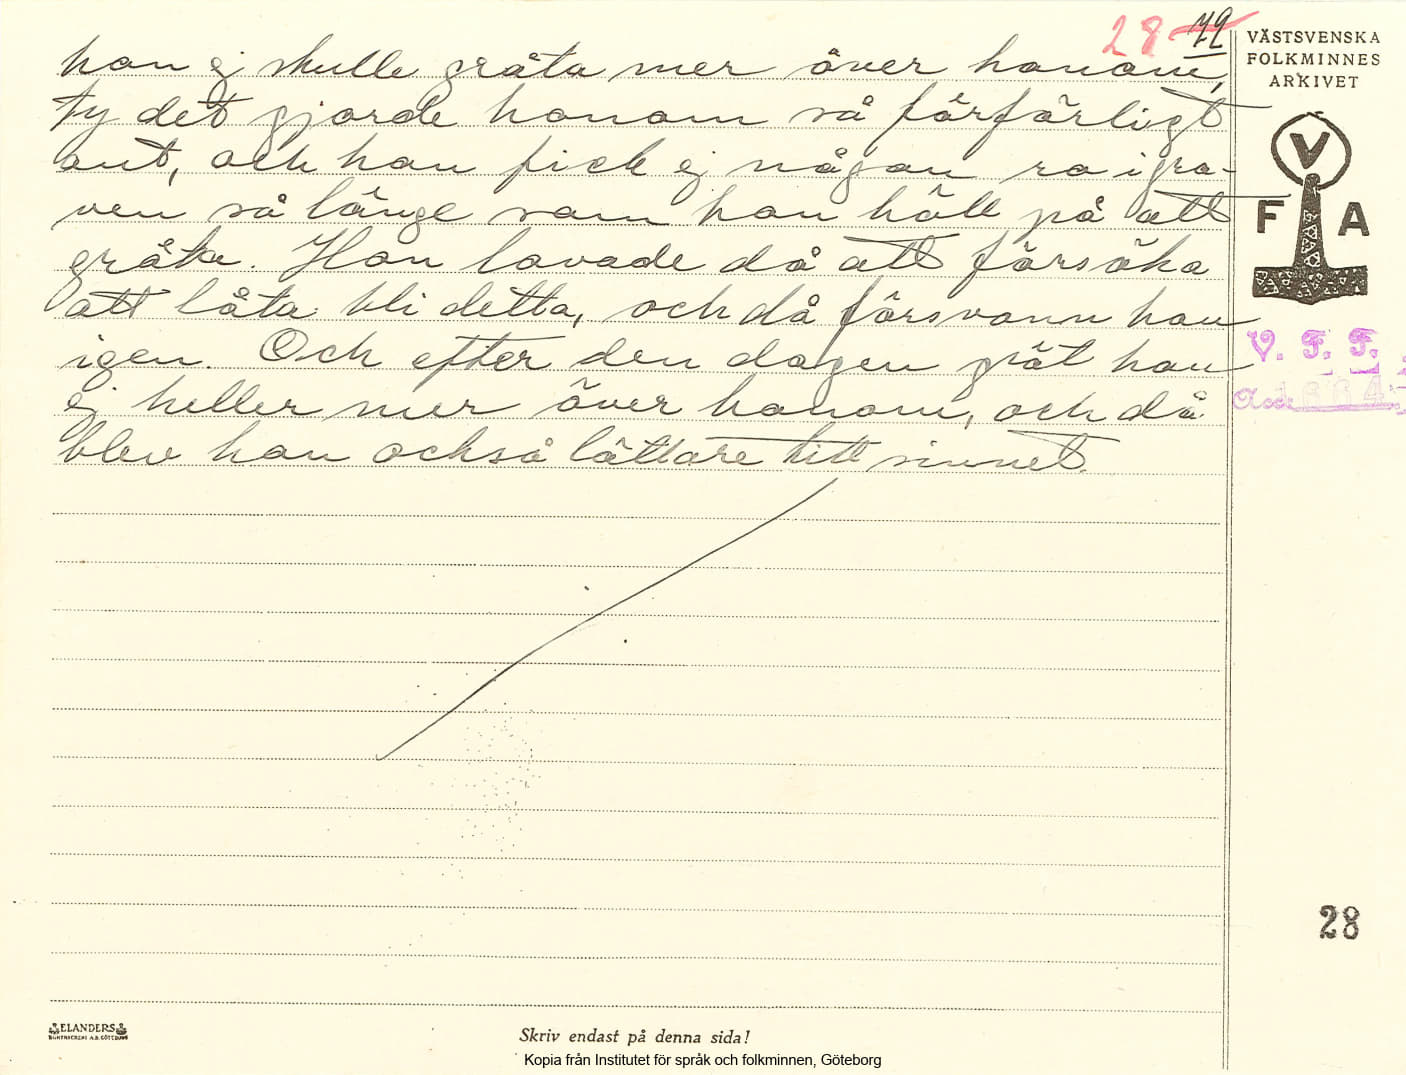 28 72
VÄSTSVENSKA
FOLKMINNES
ARKIVET
han ej skulle gråta mer över honom,
ty det gjorde honom så förfärligt
ont, och han fick ej någon ro i gra-
ven så länge som han höll på att
gråta. Han lovade då att försöka
att låta bli detta, och då försvann han
igen. Och efter den dagen grät han
ej heller mer över honom, och då
blev han också lättare till sinnet.
V
F A
V. F. F.
Acc. 664
28
ELANDERS
BOKTRYCKERI A.B. GÖTEBORG
Skriv endast på denna sida!
Kopia från Institutet för språk och folkminnen, Göteborg